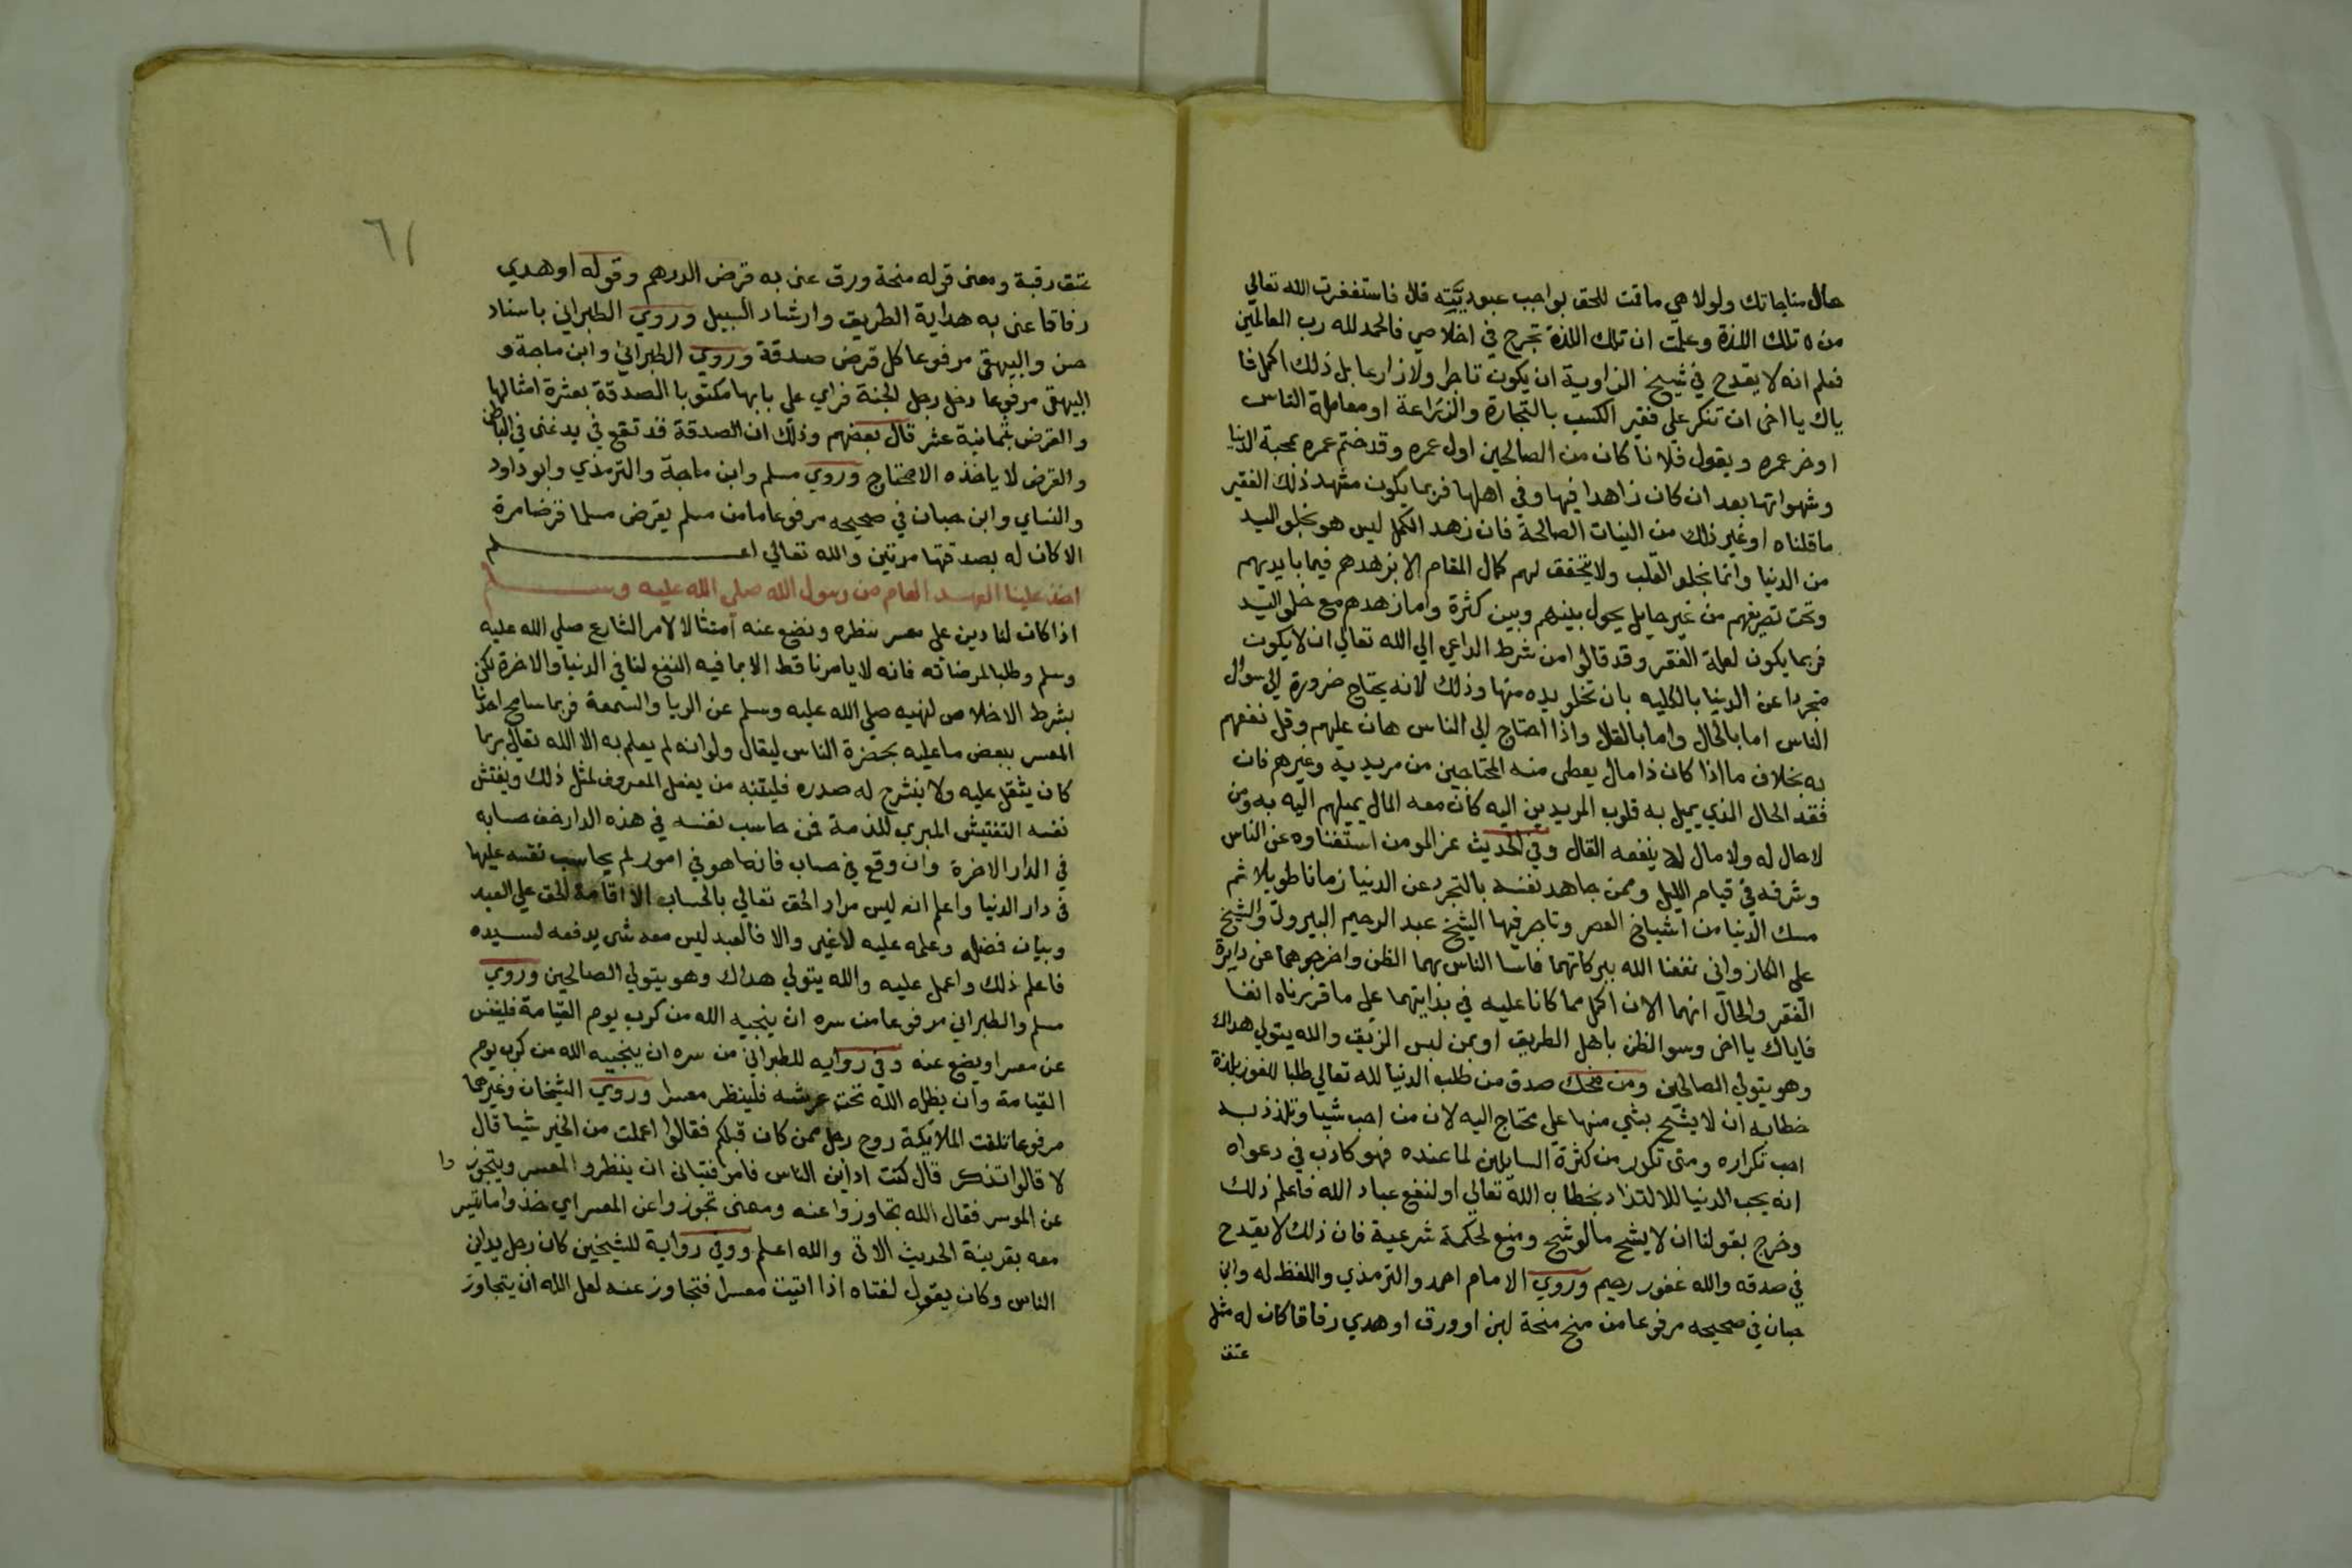 حال مناجاتك ولولا هي ما قمت للحق بواجب عبوديته قال فاستغفرت الله تعالي
من تلك اللذة وعلمت ان تلك اللذة تجرح في اخلاصي فالحمد لله رب العالمين
فعلم انه لا يقدح في شيخ الزاوية ان يكون تاجرا ولا زارعا بل ذلك اكمل فا
ياك يا اخي ان تنكر علي فقير الكسب بالتجارة والزراعة او معاملة الناس
اوخر عمره ويقول فلانا كان من الصالحين اول عمره وقد ختم عمره بمحبة الدنيا
وشهواتها بعد ان كان زاهدا فيها وفي اهلها فربما يكون مشهد ذلك الفقير
ما قلناه او غير ذلك من النيات الصالحة فان زهد الكمل ليس هو بخلو اليد
من الدنيا وانما بخلو القلب ولا يتحقق لهم كمال المقام الا بزهدهم فيما بايديهم
وتحت تصريفهم من غير حايل يحول بينهم وبين كثرة واما زهدهم مع خلو اليد
فربما يكون لعلة الفقر وقد قالوا من شرط الداعي الي الله تعالي ان لا يكون
متجردا عن الدنيا بالكليه بان تخلو يده منها وذلك لانه يحتاج ضرورة الي سوال
الناس اما بالحال واما بالقال واذا احتاج الي الناس هان عليهم وقل نفعهم
به بخلاف ما اذا كان ذا مال يعطي منه المحتاجين من مريديه وغيرهم فان
فقد الحال الذي يميل به قلوب المريدين اليه كان معه المال يميلهم اليه به ومن
لا حال له ولا مال لا ينفعه القال وفي الحديث عز المومن استغناوه عن الناس
وشرفه في قيام الليل وممن جاهد نفسه بالتجرد عن الدنيا زمانا طويلا ثم
مسك الدنيا من اشياخ العصر وتاجر فيها الشيخ عبد الرحيم البيروتي والشيخ
علي الكازواني نفعنا الله ببركاتهما فاسا الناس بهما الظن واخرجوهما عن دايرة
الفقر والحال انهما الان اكمل مما كانا عليه في بدايتهما علي ما قررناه انفا
فاياك يا اخي وسو الظن باهل الطريق او بمن لبس الزيق والله يتولي هداك
وهو يتولي الصالحين ومن محك صدق من طلب الدنيا لله تعالي طلبا للفوز بلذة
خطابه ان لا يشح بشي منها علي محتاج اليه لان من احب شيا وتلذذ به
احب تكراره ومتي تكدر من كثرة السايلين لما عنده فهو كاذب في دعواه
انه يحب الدنيا للالتذاذ بخطاب الله تعالي او لنفع عباد الله فاعلم ذلك
وخرج بقولنا ان لا يشح ما لو شح ومنع لحكمة شرعية فان ذلك لا يقدح
في صدقه والله غفور رحيم وروي الامام احمد والترمذي واللفظ له وابن
حبان في صحيحه مرفوعا من منح منحة لبن او ورق او هدي زقاقا كان له مثل
عتق
٦١
عتق رقبة ومعني قوله منحة ورق عني به قرض الدرهم وقوله او هدي
زقاقا عني به هداية الطريق وارشاد السبيل وروي الطبراني باسناد
حسن والبيهقي مرفوعا كل قرض صدقة وروي الطبراني وابن ماجة و
البيهقي مرفوعا دخل رجل الجنة فراي علي بابها مكتوبا الصدقة بعشرة امثالها
والقرض بثمانية عشر قال بعضهم وذلك ان الصدقة قد تقع في يد غني في الباطن
والقرض لا ياخذه الا محتاج وروي مسلم وابن ماجة والترمذي وابو داود
والنساي وابن حبان في صحيحه مرفوعا ما من مسلم يقرض مسلما قرضا مرة
الا كان له بصدقتها مرتين والله تعالي اعلم
اخذ علينا العهد العام من رسول الله صلي الله عليه وسلم
اذا كان لنا دين علي معسر ننظره ونضع عنه امتثالا لامر الشارع صلي الله عليه
وسلم وطلبا لمرضاته فانه لا يامرنا قط الا بما فيه النفع لنا في الدنيا والاخرة لكن
بشرط الاخلاص لنهيه صلي الله عليه وسلم عن الريا والسمعة فربما سامح احدنا
المعسر ببعض ما عليه بحضرة الناس ليقال ولو انه لم يعلم به الا الله تعالي بربما
كان يثقل عليه ولا ينشرح له صدره فليتنبه من يفعل المعروف لمثل ذلك ويفتش
نفسه التفتيش المبري للذمة فمن حاسب نفسه في هذه الدار خف حسابه
في الدار الاخرة وان وقع في حساب فانما هو في امور لم يحاسب نفسه عليها
في دار الدنيا واعلم انه ليس مراد الحق تعالي بالحساب الا اقامة الحق علي العبد
وبيان فضله وعلمه عليه لا غير والا فالعبد ليس معه شي يدفعه لسيده
فاعلم ذلك واعمل عليه والله يتولي هداك وهو يتولي الصالحين وروي
مسلم والطبراني مرفوعا من سره ان ينجيه الله من كرب يوم القيامة فلينفس
عن معسر او يضع عنه وفي رواية للطبراني من سره ان ينجيه الله من كرب يوم
القيامة وان يظله الله تحت عرشه فلينظر معسرا وروي الشيخان وغيرهما
مرفوعا تلقت الملايكة روح رجل ممن كان قبلكم فقالوا اعملت من الخير شيا قال
لا قالوا تذكر قال كنت اداين الناس فامر فتياني ان ينظروا المعسر ويتجوزوا
عن الموسر فقال الله تجاوزوا عنه ومعني تجوزوا عن المعسر اي خذوا ما تيسر
معه بقرينة الحديث الاتي والله اعلم وفي رواية للشيخين كان رجل يداين
الناس وكان يقول لفتاه اذا اتيت معسرا فتجاوز عنه لعل الله ان يتجاوز